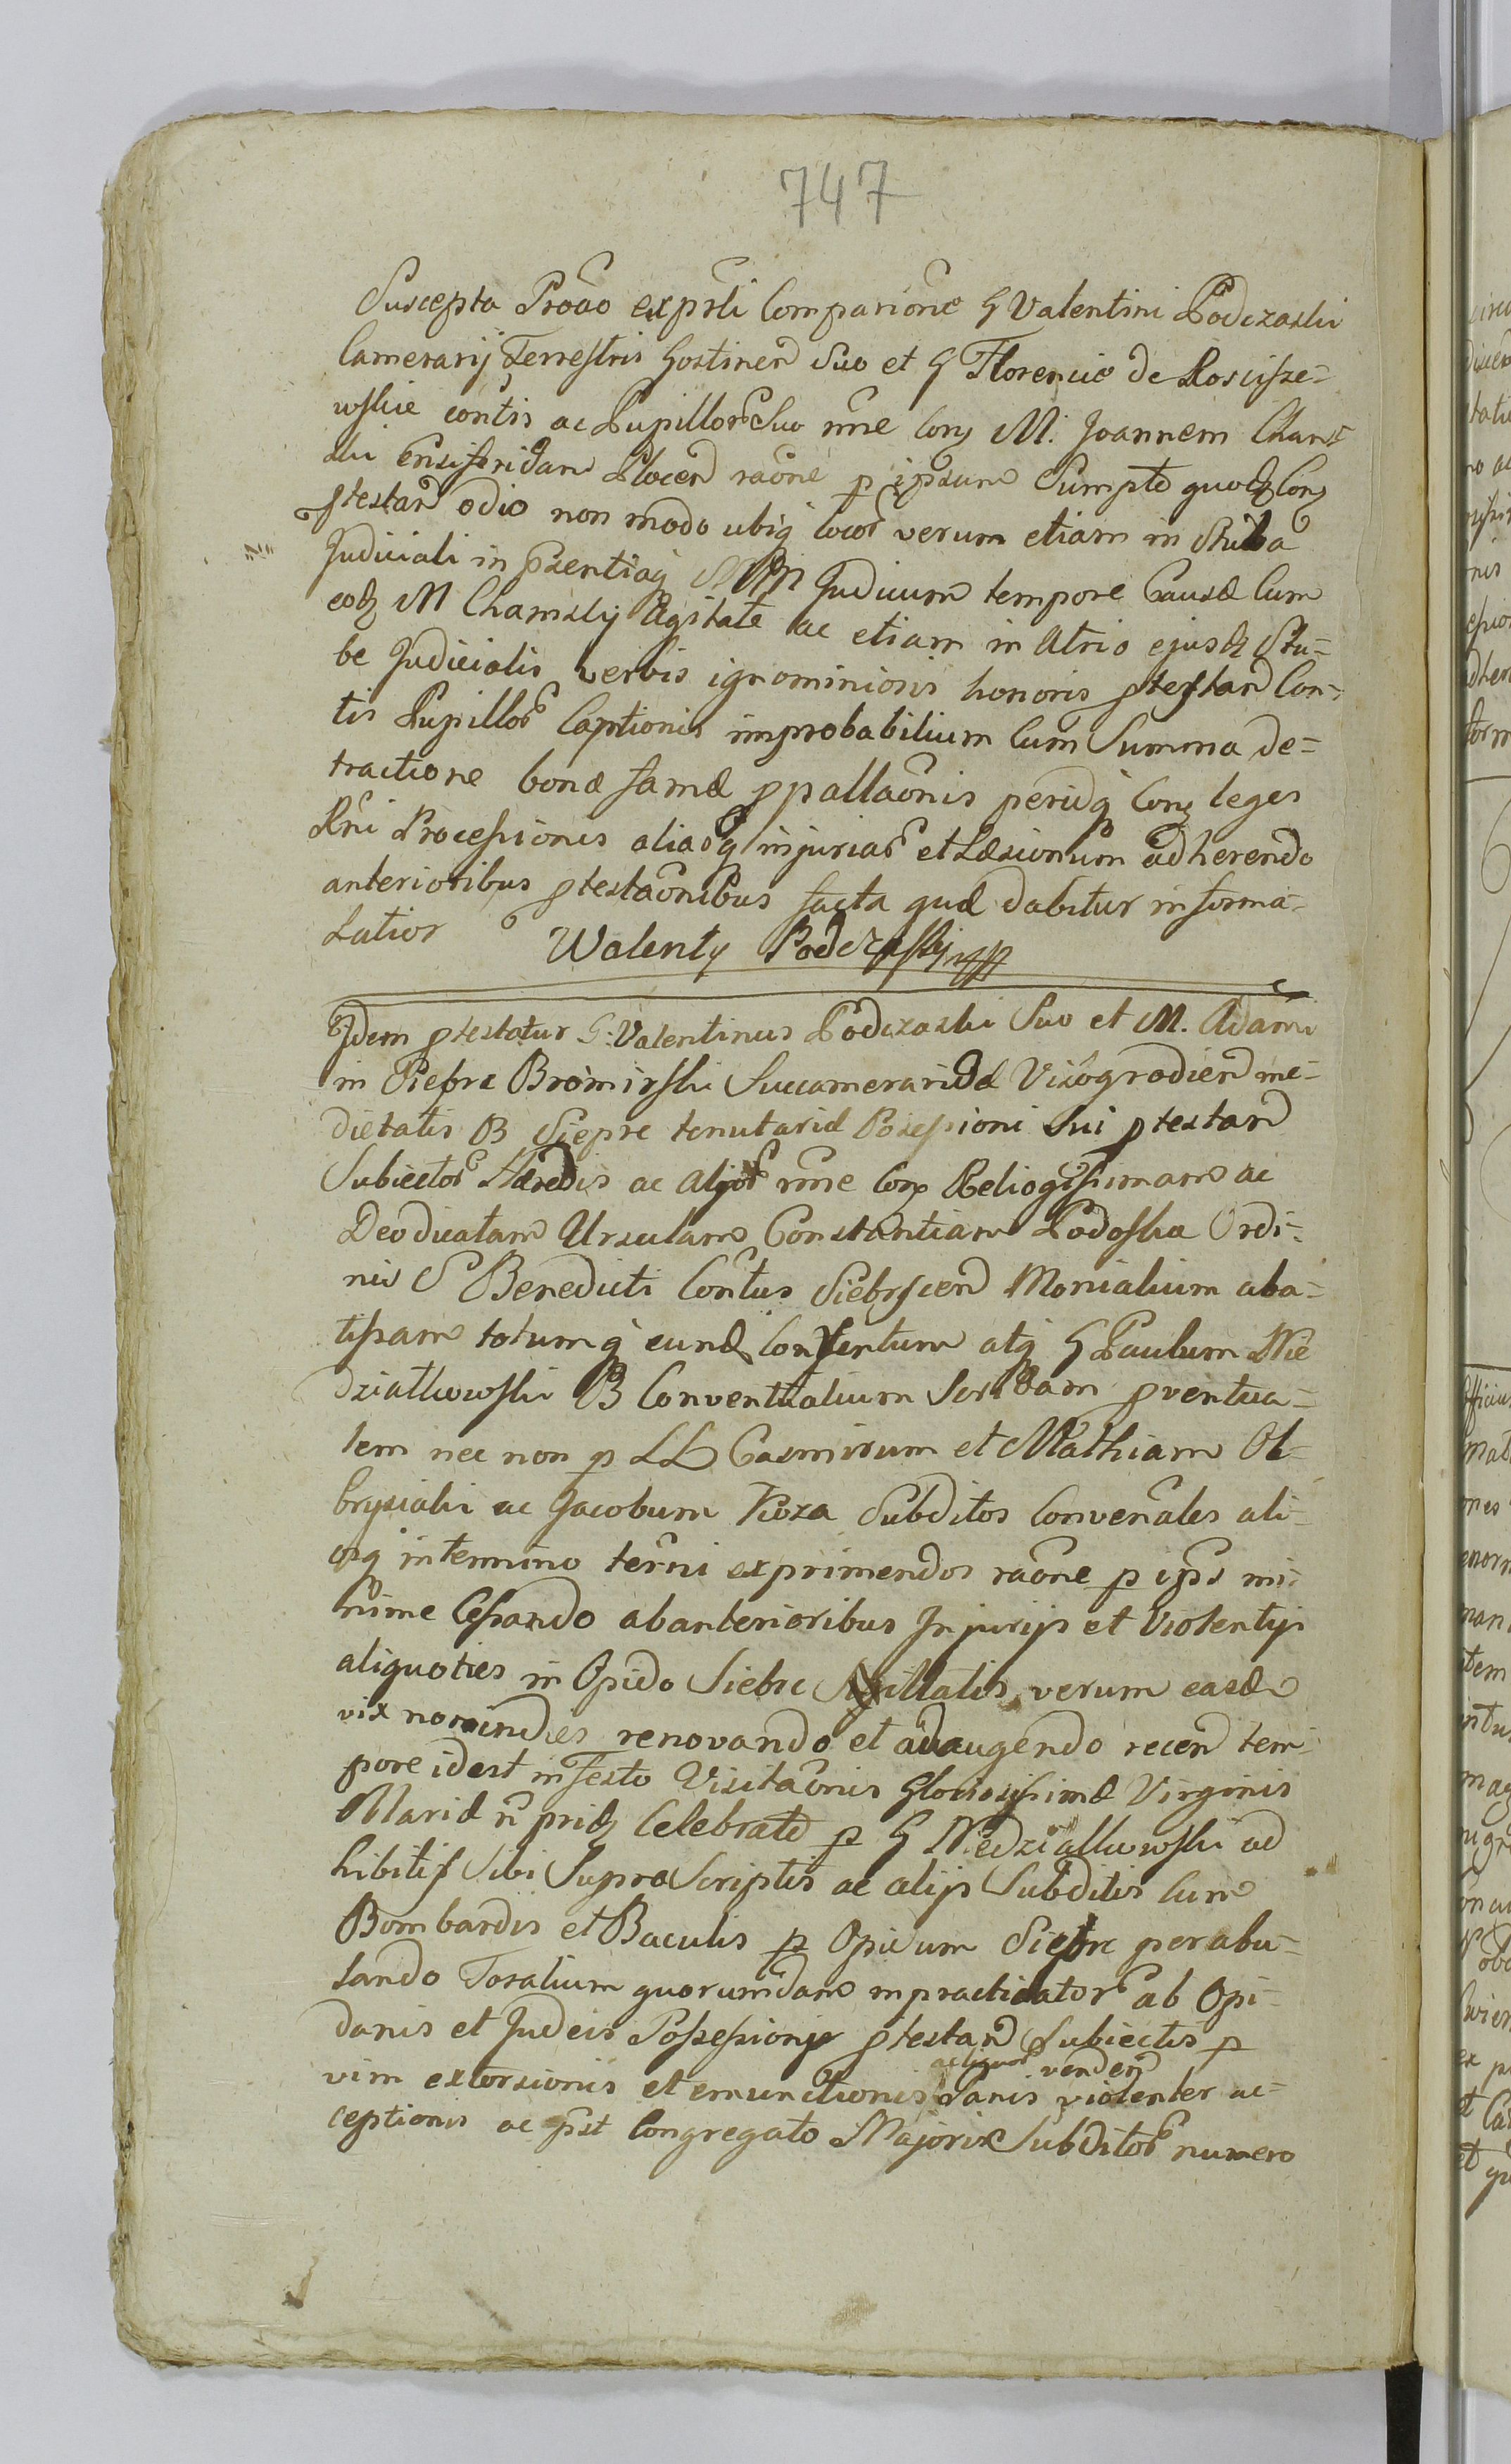 747
Suscepta Prõao exprli Comparione G Valentini Podczaski
Camerarij Terrestris Gostinen Suo et G Florencio de Roscisze=
wskie contis ac Pupillor Suo nne Con M. Joannem Cham=
ski Ensiferidam Plocen raone p ipsum Sumpto quod Con
ptestan odio non modo ubiq locor verum etiam in Stuba
Judiciali in psentiaq MM Judicum tempore Causæ Cum
eod M Chamsky Agitate ac etiam in Atrio ejusd Stu=
be Judicialis verbis ignominiosis honoris ptestan Con=
tis Pupillor Captionis improbabilium Cum Summa de=
tractione bonæ famæ ppallaonis periuq Con leges
Rni Processionis aliarq injuriar et Læsionum adherendo
anterioribus ptestaonibus facta quæ dabitur in forma
Latior Walenty Podczaski mpp
Idem ptestatur G: Valentinus Podczaski Suo et M. Adami
in Siepre Bromirski Succameraridæ Visogrodien me=
dietatis B Siepre tenutariæ Possessioni Sui ptestan
Subiector Hæredis ac Alijor nne Con Religiosissimam ac
Deodicatam Ursulam Constantiam Podoska Ordi=
nis S Benedicti Contus Siebscen Monialium aba=
tissam totumq eund Conventum atq G Paulum Nie
dziatkowski B Conventualium Scribam pventua=
lem nec non p LL Casmirum et Mathiam Ol=
brysiali ac Jacobum Koza Subditos Convenales ali=
osq in termino terni exprimendos raone p ips mi=
nime Cessando ab anterioribus Injurijs et Violentijs
aliquoties in Opido Siebre patratis, verum easd
vix non indies renovando et adaugendo recen tem=
pore id est in Festo Visitaonis Gloriosissimæ Virginis
Mariæ n prid Celebrato p G Niedziałkowski ad
hibitis Sibi Supra Scriptis ac alijs Subditis Cum
Bombardis et Baculis p Opidum Siepre perabu=
lando Foralium quorumdam inpracticator ab Opi=
danis et Judeis Possessionis ptestan Subiectis p
ac liquor venden
vim extorsionis et emunctionis Panis violenter ac=
ceptionis ac pst Congregato Majoris Subditor numero